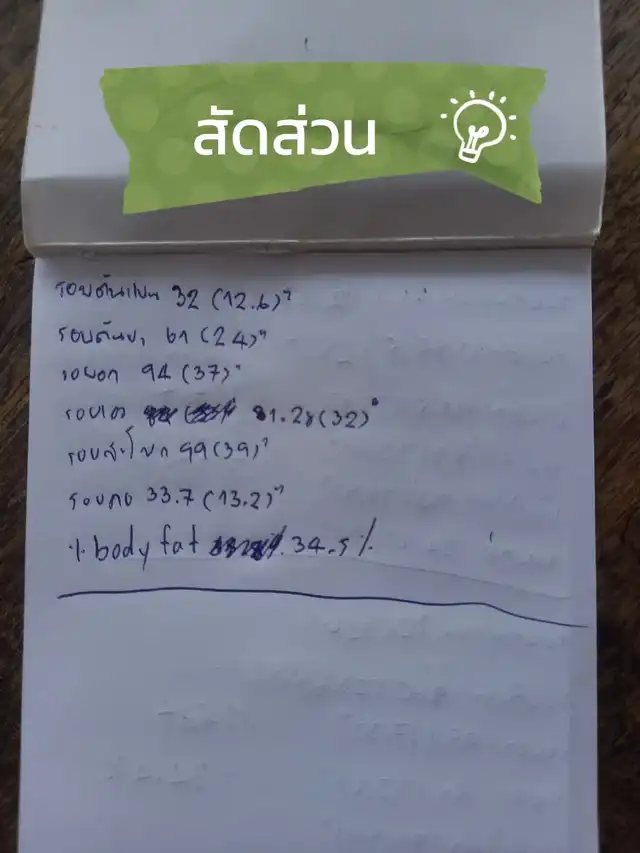 สัดส่วน
รอบต้นแขน 32 (12.6)"
รอบต้นขา 61 (24)"
รอบอก 94 (37)"
รอบเอว 81.28 (32)"
รอบสะโพก 99 (39)"
รอบคอ 33.7 (13.2)"
% body fat 34.5%